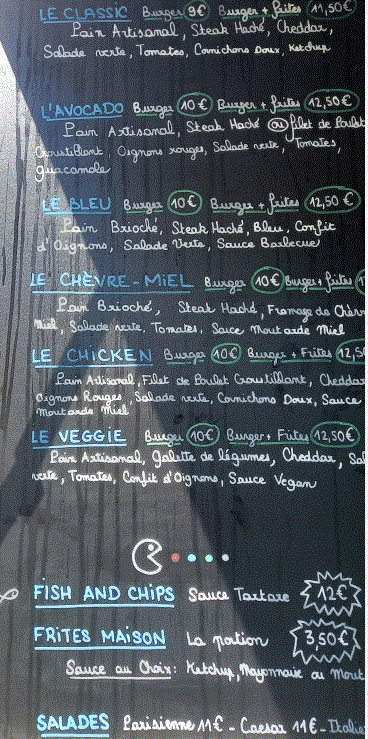 LE CLASSIC Burger 9€ Burger + frites 11,50€
Pain Artisanal, Steak Haché, Cheddar,
Salade verte, Tomates, Cornichons Doux, Ketchup
L'AVOCADO Burger 10€ Burger + frites 12,50€
Pain Artisanal, Steak Haché ou filet de Poulet
Croustillant, Oignons rouges, Salade verte, Tomates,
guacamole
LE BLEU Burger 10€ Burger + frites 12,50€
Pain Brioché, Steak Haché, Bleu, Confit
d'Oignons, Salade Verte, Sauce Barbecue
LE CHÈVRE-MIEL Burger 10€ Burger + frites
Pain Brioché, Steak Haché, Fromage de Chèvre
Miel, Salade verte, Tomates, Sauce Moutarde Miel
LE CHICKEN Burger 10€ Burger + Frites 12,5
Pain Artisanal, Filet de Poulet Croustillant, Cheddar
Oignons Rouges, Salade verte, Cornichons Doux, Sauce
Moutarde Miel
LE VEGGIE Burger 10€ Burger + Frites 12,50€
Pain Artisanal, Galette de légumes, Cheddar, Sal
verte, Tomates, Confit d'Oignons, Sauce Vegan
FISH AND CHIPS Sauce Tartare 12€
FRITES MAISON La portion 3,50€
Sauce au Choix: Ketchup, Mayonnaise ou Mout
SALADES Parisienne 11€ - Caesar 11€ - Italie